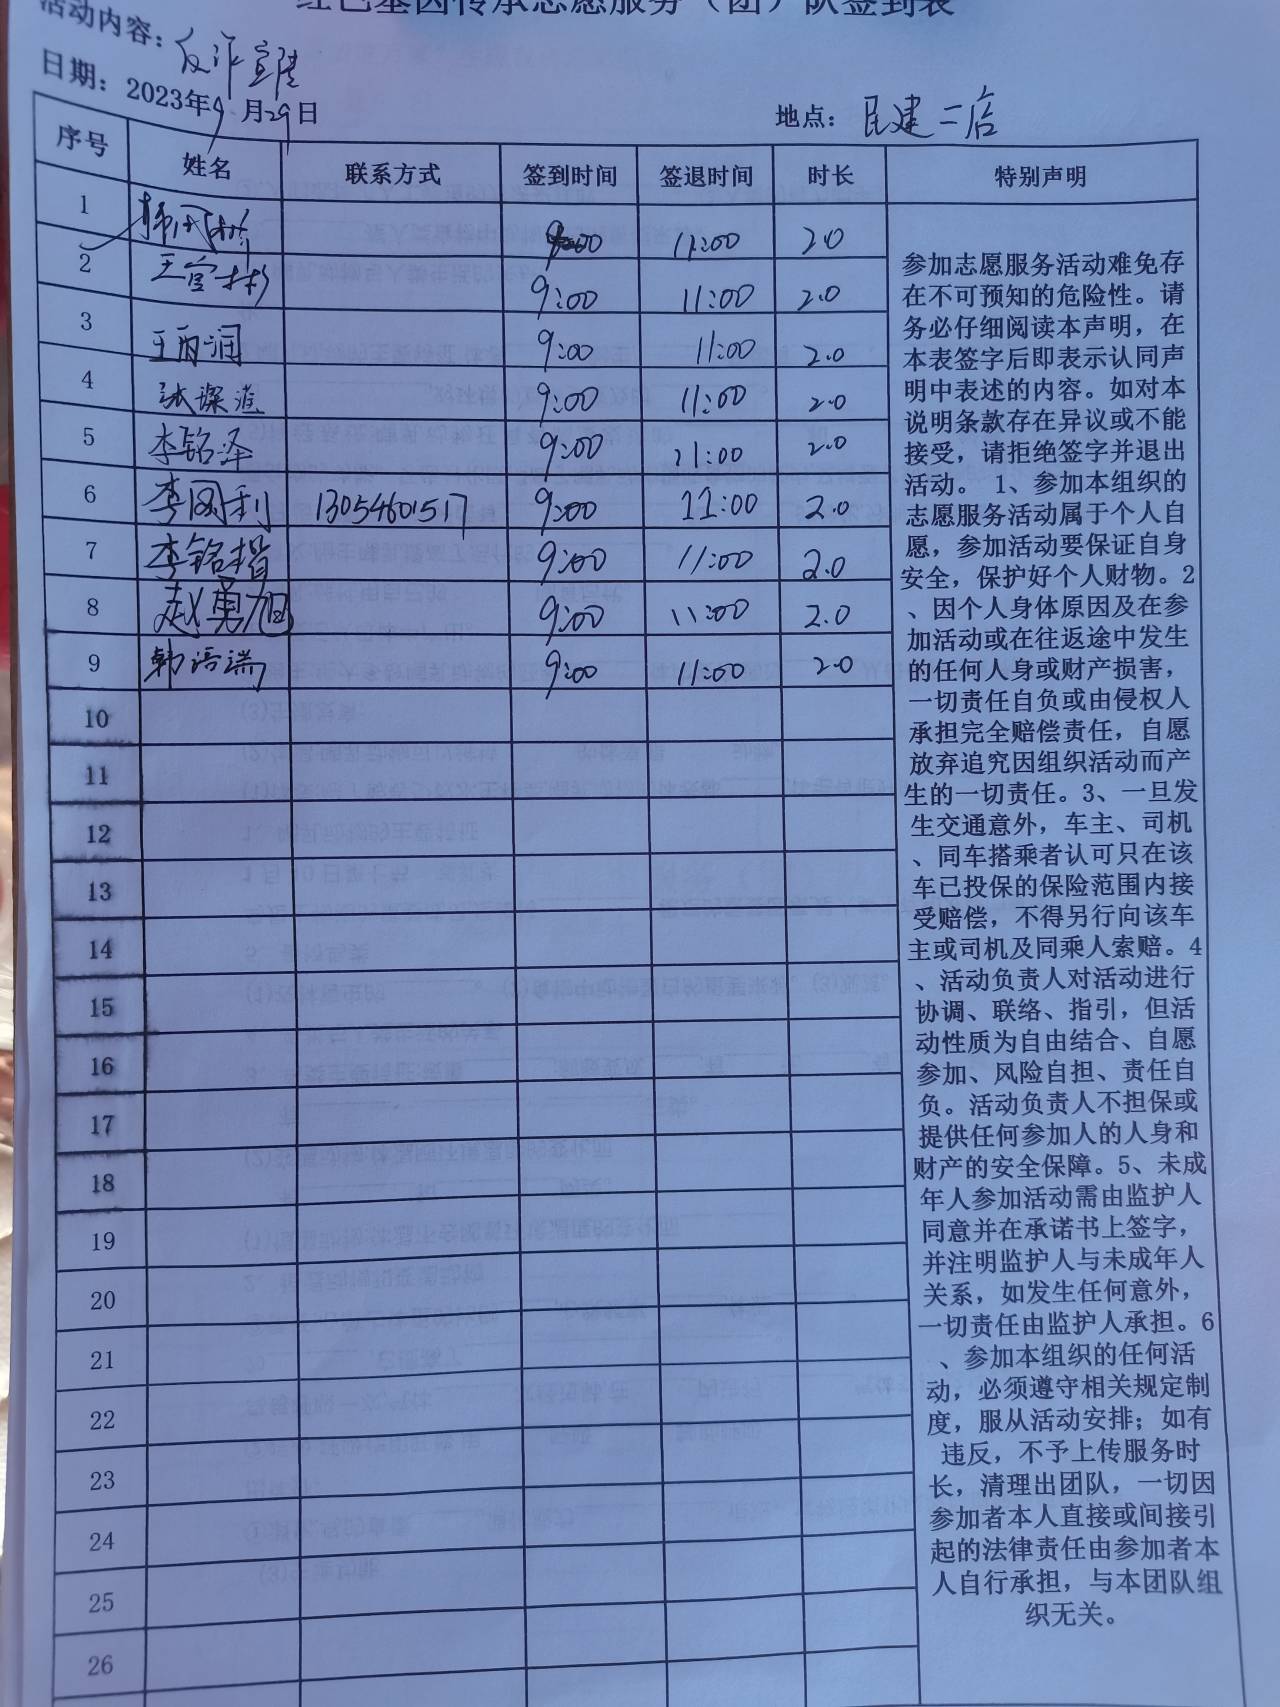 红色基因传承志愿服务（团）队签到表
活动内容：反诈宣传
日期：2023年9月29日
地点：民建二店
序号 姓名 联系方式 签到时间 签退时间 时长 特别声明
1 9:00 11:00 2.0
2 王宜彬 9:00 11:00 2.0
3 9:00 11:00 2.0
4 9:00 11:00 2.0
5 李铭泽 9:00 11:00 2.0
6 李国利 1305460151 9:00 11:00 2.0
7 李铭楷 9:00 11:00 2.0
8 赵勇旭 9:00 11:00 2.0
9 韩语瑞 9:00 11:00 2.0
10
11
12
13
14
15
16
17
18
19
20
21
22
23
24
25
26
参加志愿服务活动难免存
在不可预知的危险性。请
务必仔细阅读本声明，在
本表签字后即表示认同声
明中表述的内容。如对本
说明条款存在异议或不能
接受，请拒绝签字并退出
活动。 1、参加本组织的
志愿服务活动属于个人自
愿，参加活动要保证自身
安全，保护好个人财物。2
、因个人身体原因及在参
加活动或在往返途中发生
的任何人身或财产损害，
一切责任自负或由侵权人
承担完全赔偿责任，自愿
放弃追究因组织活动而产
生的一切责任。3、一旦发
生交通意外，车主、司机
、同车搭乘者认可只在该
车已投保的保险范围内接
受赔偿，不得另行向该车
主或司机及同乘人索赔。4
、活动负责人对活动进行
协调、联络、指引，但活
动性质为自由结合、自愿
参加、风险自担、责任自
负。活动负责人不担保或
提供任何参加人的人身和
财产的安全保障。5、未成
年人参加活动需由监护人
同意并在承诺书上签字，
并注明监护人与未成年人
关系，如发生任何意外，
一切责任由监护人承担。6
、参加本组织的任何活
动，必须遵守相关规定制
度，服从活动安排；如有
违反，不予上传服务时
长，清理出团队，一切因
参加者本人直接或间接引
起的法律责任由参加者本
人自行承担，与本团队组
织无关。